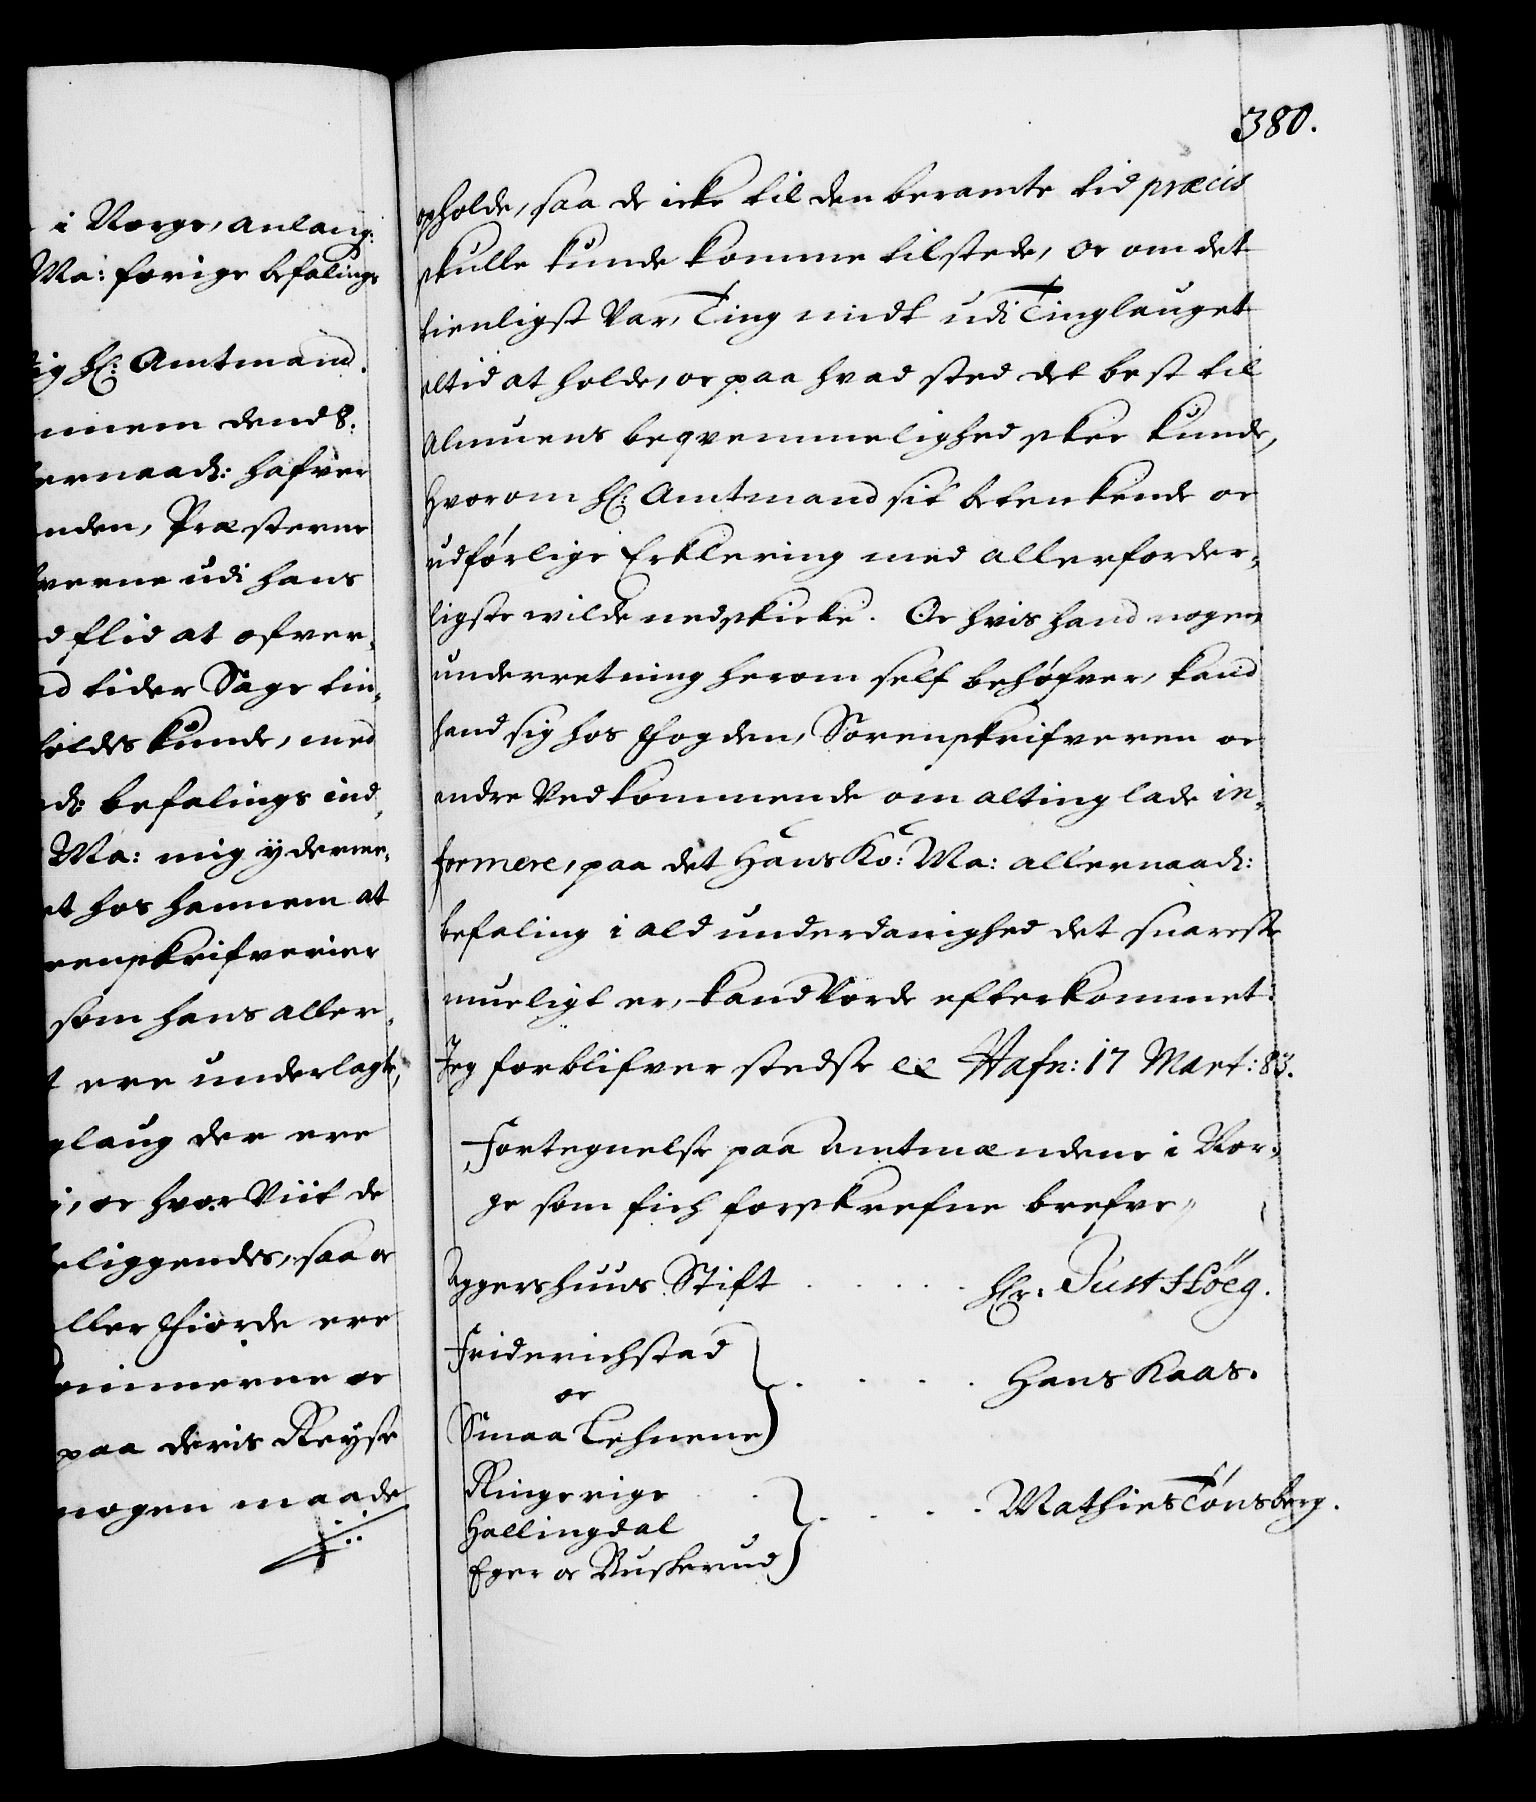 i Norge, anlang:
Ma: forige befalings
hr: Amtmand.
dend 8.
hafver
Præsterne
udi hans
flid at ofver-
tider Sage tin-
holdes kunde, med
befalings ind-
Ma: mig yderme-
et hos hannem at
renskrifverier
som hans aller-
ere underlagte,
glaug der ere
oc hvor viit de
beliggendes, saa oc
eller Fiorde ere
oc
paa deris Reyse
nogen maade
380.
opholde, saa de icke til den beramte tid præcis
skulle kunde komme tilstede, oc om det
tienligst var, Ting midt udi Tinglauget
altid at holde, oc paa hvad sted det best til
Almuens beqvemmelighed skee kunde,
hvorom hr: Amtmand sit betenkende oc
udførlige Erklering med allerforder-
ligste wilde nedskicke. Oc hvis hand nogen
underretning herom self behøfver, kand
hand sig hos Fogden, Sorenskrifveren oc
andre vedkommende om alting lade in-
formere, paa det Hans Ko: Ma: allernaad:
befaling i ald underdanighed det snareste
mueligt er, kand vorde efterkommet.
Jeg forblifver stedse etc Hafn: 17 Mart: 83.
Fortegnelse paa Amtmændene i Nor-
ge som fich forskrefne brefve
Aggershuus Stift . . . . . Hr. Just Høeg.
Friderichstad
oc
Smaa Lehnene . . . . Hans Kaas.
Ringerige
Hallingdal
Eger oc Buskerud . . . . Mathies Tønsberg.